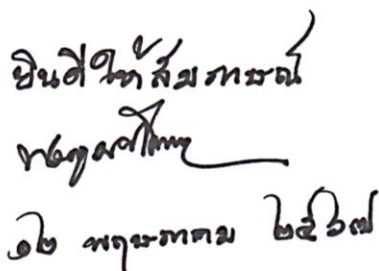 ยินดีให้สัมภาษณ์
๑๒ พฤษภาคม ๒๕๖๗